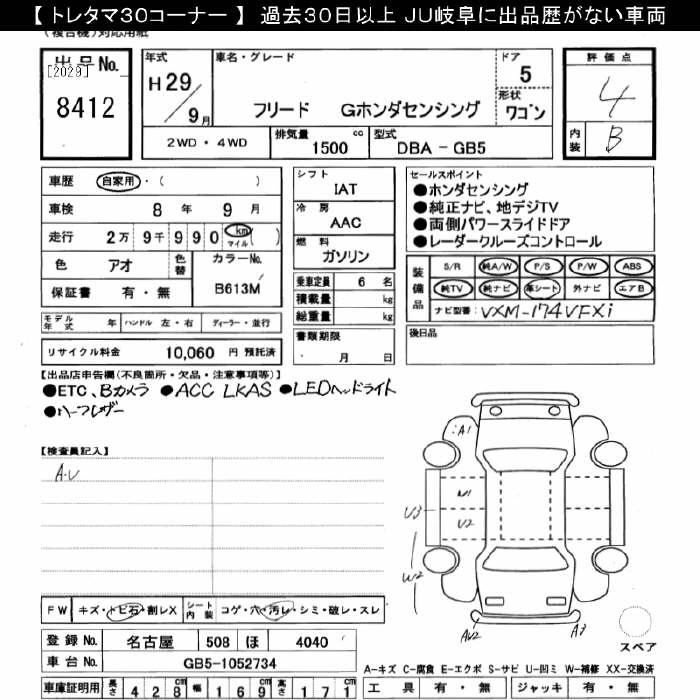 【 トレタマ30コーナー 】 過去30日以上 JU岐阜に出品歴がない車両
(複合機)対応用紙
出品No.
[2029]
8412
年式
H 29/9月
車名・グレード
フリード Gホンダセンシング
ドア
5
形状
ワゴン
評価点
4
内装
B
2WD・4WD
排気量
1500 cc
型式
DBA - GB5
車歴 自家用・( )
車検 8 年 9 月
走行 2万 9千 9 9 0 km マイル ( )
色 アオ
色替
カラーNo.
B613M
保証書 有・無
モデル年式 年 ハンドル 左・右 ディーラー・並行
リサイクル料金 10,060 円 預託済
シフト
IAT
冷房
AAC
燃料
ガソリン
乗車定員 6 名
積載量 kg
総重量 kg
書類期限
・ 月 日
セールスポイント
●ホンダセンシング
●純正ナビ、地デジTV
●両側パワースライドドア
●レーダークルーズコントロール
装備品
S/R 純A/W P/S P/W ABS
純TV 純ナビ 革シート 外ナビ エアB
ナビ型番: VXM-174VFXi
後日品
【出品店申告欄(不良箇所・欠品・注意事項等)】
●ETC、Bカメラ ●ACC LKAS ●LEDヘッドライト
●ハーフレザー
【検査員記入】
A・U
A1
U3
U1
U2
W2
AU2
A3
スペア
FW キズ・トビ石・割レX
シート内装 コゲ・穴・汚レ・シミ・破レ・スレ
登録No. 名古屋 508 ほ 4040
車台No. GB5-1052734
車庫証明用 長さ 4 2 8 cm 幅 1 6 9 cm 高さ 1 7 1 cm
A-キズ C-腐食 E-エクボ S-サビ U-凹ミ W-補修 XX-交換済
工具 有・無 ジャッキ 有・無